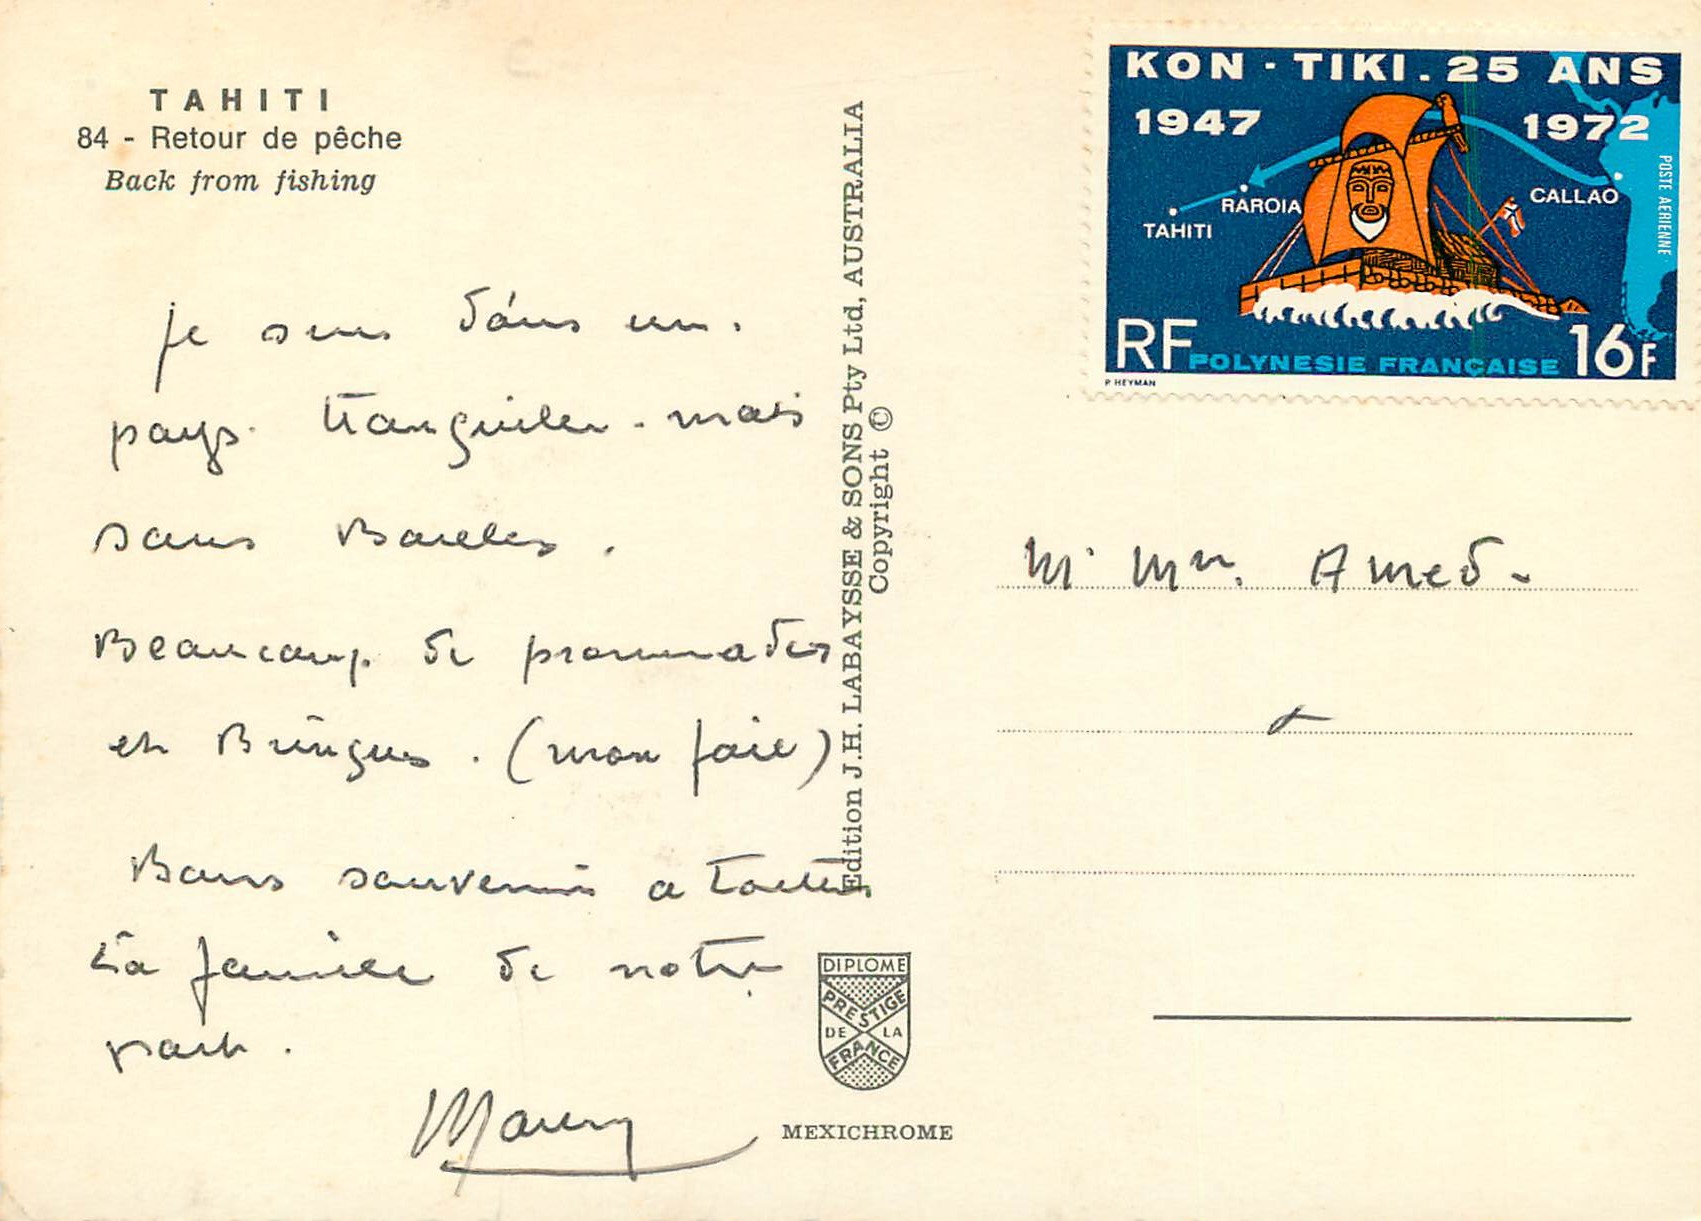 TAHITI
84 - Retour de pêche
Back from fishing
Je suis dans un.
pays tranquille - mais
sans
Beaucoup de promenades
et Bringues. (mon foie)
Bons souvenirs a toute
La famille de notre
part.
Edition J.H. LABAYSSE & SONS Pty Ltd, AUSTRALIA
Copyright ©
DIPLOME
PRESTIGE
DE LA
FRANCE
MEXICHROME
KON-TIKI. 25 ANS
1947 1972
RAROIA
TAHITI
CALLAO
POSTE AERIENNE
RF POLYNESIE FRANÇAISE 16F
P. HEYMAN
Mr Mme. Amed.